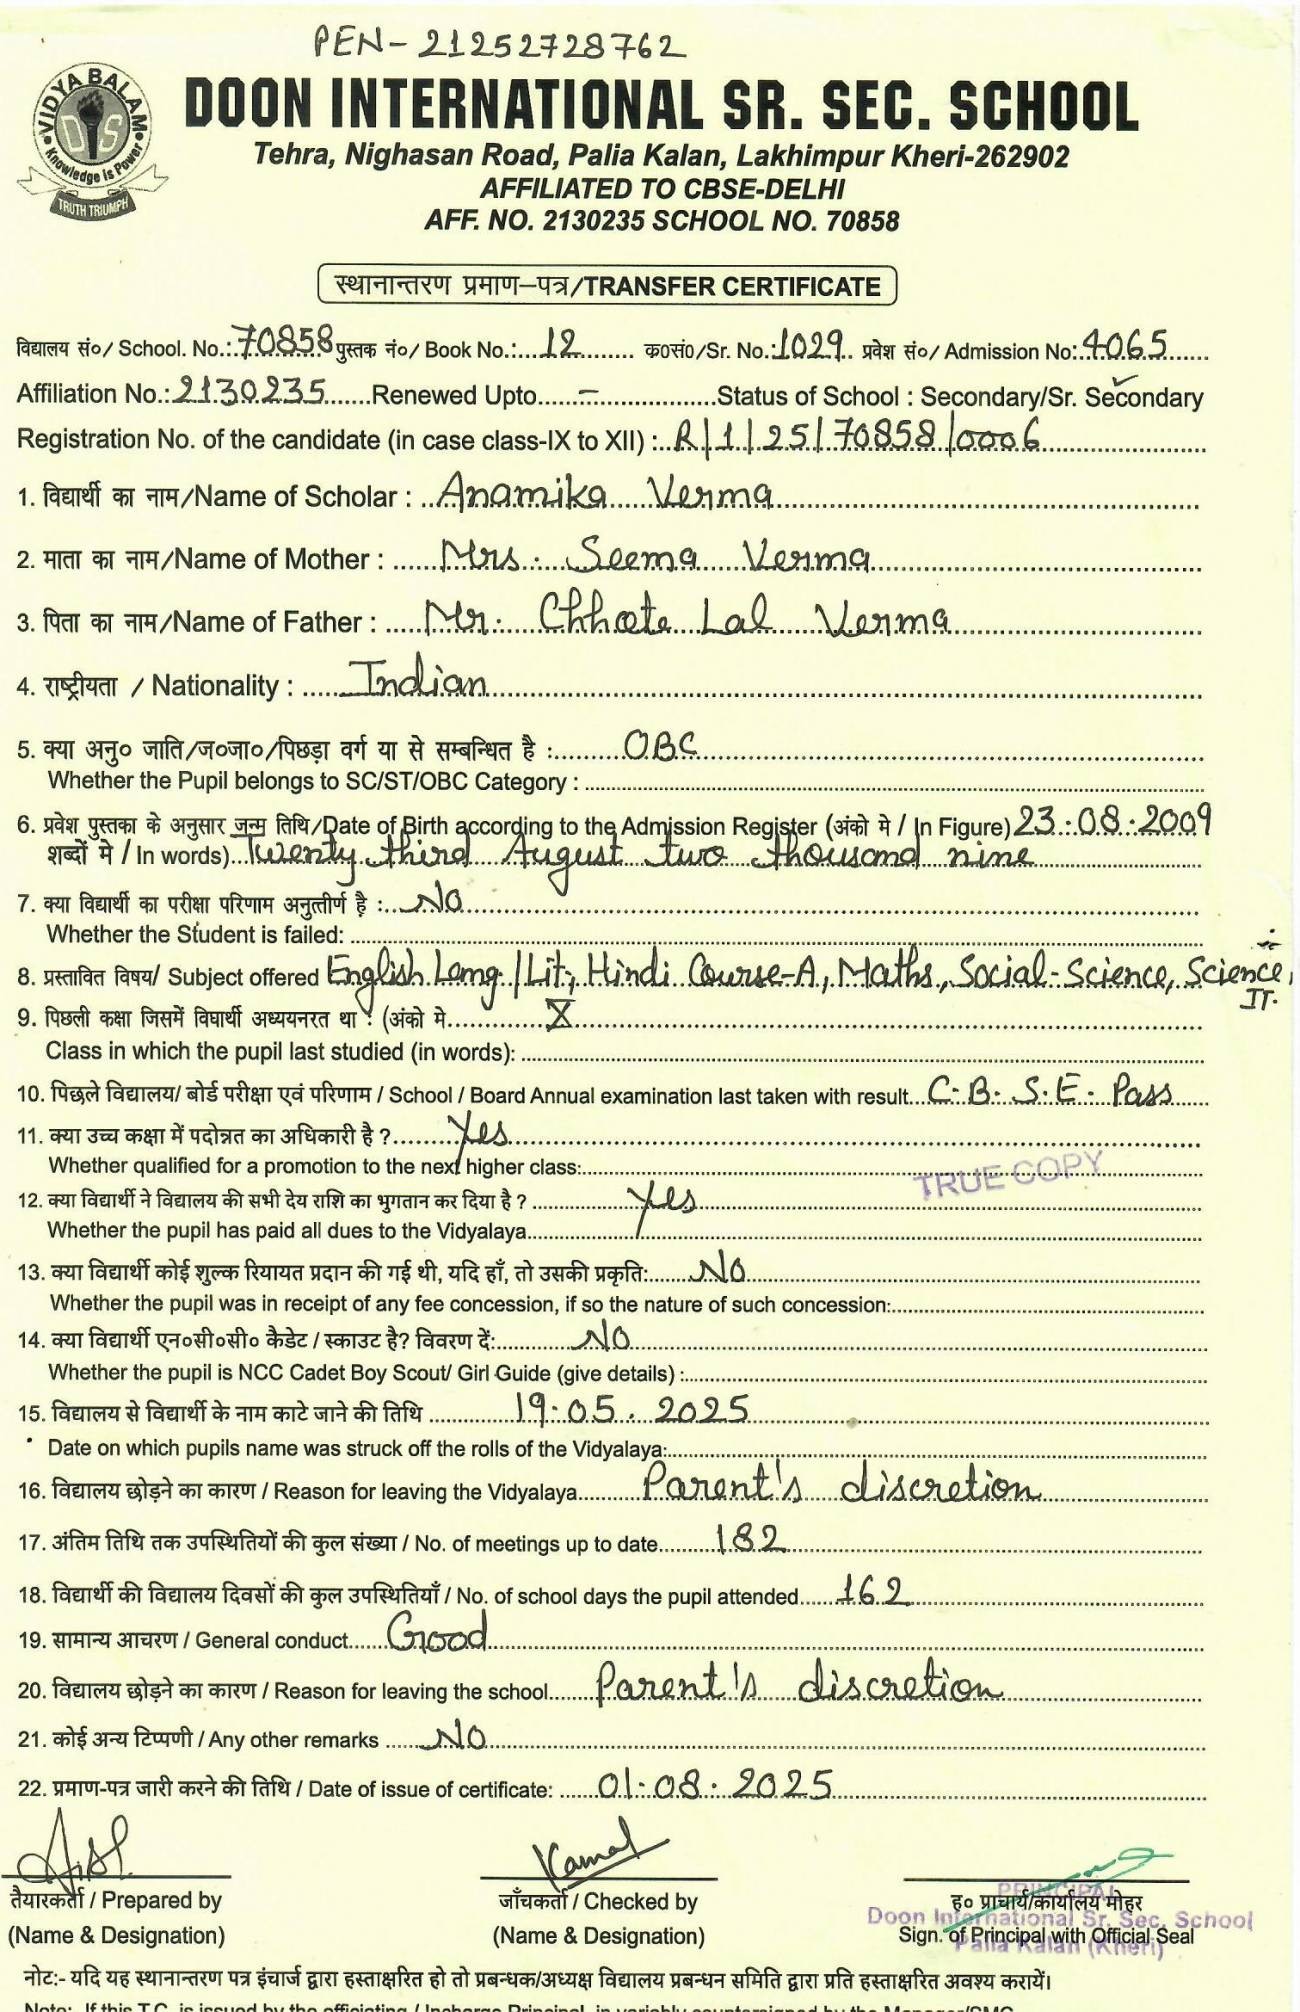 PEN- 21252728762
VIDYA BALAM
DIS
Knowledge is Power
TRUTH TRIUMPH
DOON INTERNATIONAL SR. SEC. SCHOOL
Tehra, Nighasan Road, Palia Kalan, Lakhimpur Kheri-262902
AFFILIATED TO CBSE-DELHI
AFF. NO. 2130235 SCHOOL NO. 70858
स्थानान्तरण प्रमाण–पत्र/TRANSFER CERTIFICATE
विद्यालय सं०/ School. No.: 70858 पुस्तक नं०/ Book No.: 12 क०सं०/Sr. No.: 1029 प्रवेश सं०/ Admission No: 4065
Affiliation No.: 2130235 Renewed Upto - Status of School : Secondary/Sr. Secondary
Registration No. of the candidate (in case class-IX to XII) : R/1/25/70858/0006
1. विद्यार्थी का नाम/Name of Scholar : Anamika Verma
2. माता का नाम/Name of Mother : Mrs. Seema Verma
3. पिता का नाम/Name of Father : Mr. Chhote Lal Verma
4. राष्ट्रीयता / Nationality : Indian
5. क्या अनु० जाति/ज०जा०/पिछड़ा वर्ग या से सम्बन्धित है : OBC
Whether the Pupil belongs to SC/ST/OBC Category :
6. प्रवेश पुस्तका के अनुसार जन्म तिथि/Date of Birth according to the Admission Register (अंको मे / In Figure) 23.08.2009
शब्दों मे / In words) Twenty third August two thousand nine
7. क्या विद्यार्थी का परीक्षा परिणाम अनुत्तीर्ण है : No
Whether the Student is failed:
8. प्रस्तावित विषय/ Subject offered English Lang./Lit, Hindi Course-A, Maths, Social-Science, Science,
IT.
9. पिछली कक्षा जिसमें विघार्थी अध्ययनरत था : (अंको मे X
Class in which the pupil last studied (in words):
10. पिछले विद्यालय/ बोर्ड परीक्षा एवं परिणाम / School / Board Annual examination last taken with result C.B.S.E. Pass
11. क्या उच्च कक्षा में पदोन्नत का अधिकारी है ? Yes
Whether qualified for a promotion to the next higher class:
TRUE COPY
12. क्या विद्यार्थी ने विद्यालय की सभी देय राशि का भुगतान कर दिया है ? Yes
Whether the pupil has paid all dues to the Vidyalaya
13. क्या विद्यार्थी कोई शुल्क रियायत प्रदान की गई थी, यदि हाँ, तो उसकी प्रकृति: No
Whether the pupil was in receipt of any fee concession, if so the nature of such concession:
14. क्या विद्यार्थी एन०सी०सी० कैडेट / स्काउट है? विवरण दें: No
Whether the pupil is NCC Cadet Boy Scout/ Girl Guide (give details) :
15. विद्यालय से विद्यार्थी के नाम काटे जाने की तिथि 19.05.2025
Date on which pupils name was struck off the rolls of the Vidyalaya:
16. विद्यालय छोड़ने का कारण / Reason for leaving the Vidyalaya Parent's discretion
17. अंतिम तिथि तक उपस्थितियों की कुल संख्या / No. of meetings up to date 182
18. विद्यार्थी की विद्यालय दिवसों की कुल उपस्थितियाँ / No. of school days the pupil attended 162
19. सामान्य आचरण / General conduct Good
20. विद्यालय छोड़ने का कारण / Reason for leaving the school Parent's discretion
21. कोई अन्य टिप्पणी / Any other remarks No
22. प्रमाण-पत्र जारी करने की तिथि / Date of issue of certificate: 01.08.2025
Kamal
तैयारकर्ता / Prepared by जाँचकर्ता / Checked by ह० प्राचार्य/कार्यालय मोहर
PRINCIPAL
Doon International Sr. Sec. School
Palia Kalan (Kheri)
(Name & Designation) (Name & Designation) Sign. of Principal with Official Seal
नोट:- यदि यह स्थानान्तरण पत्र इंचार्ज द्वारा हस्ताक्षरित हो तो प्रबन्धक/अध्यक्ष विद्यालय प्रबन्धन समिति द्वारा प्रति हस्ताक्षरित अवश्य करायें।
Note:- If this T.C. is issued by the officiating / Incharge Principal, in variably countersigned by the Manager/SMC